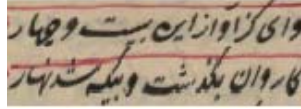 وای کز آواز این بیست و چهار
کاروان بگذشت و بیگه شد نهار